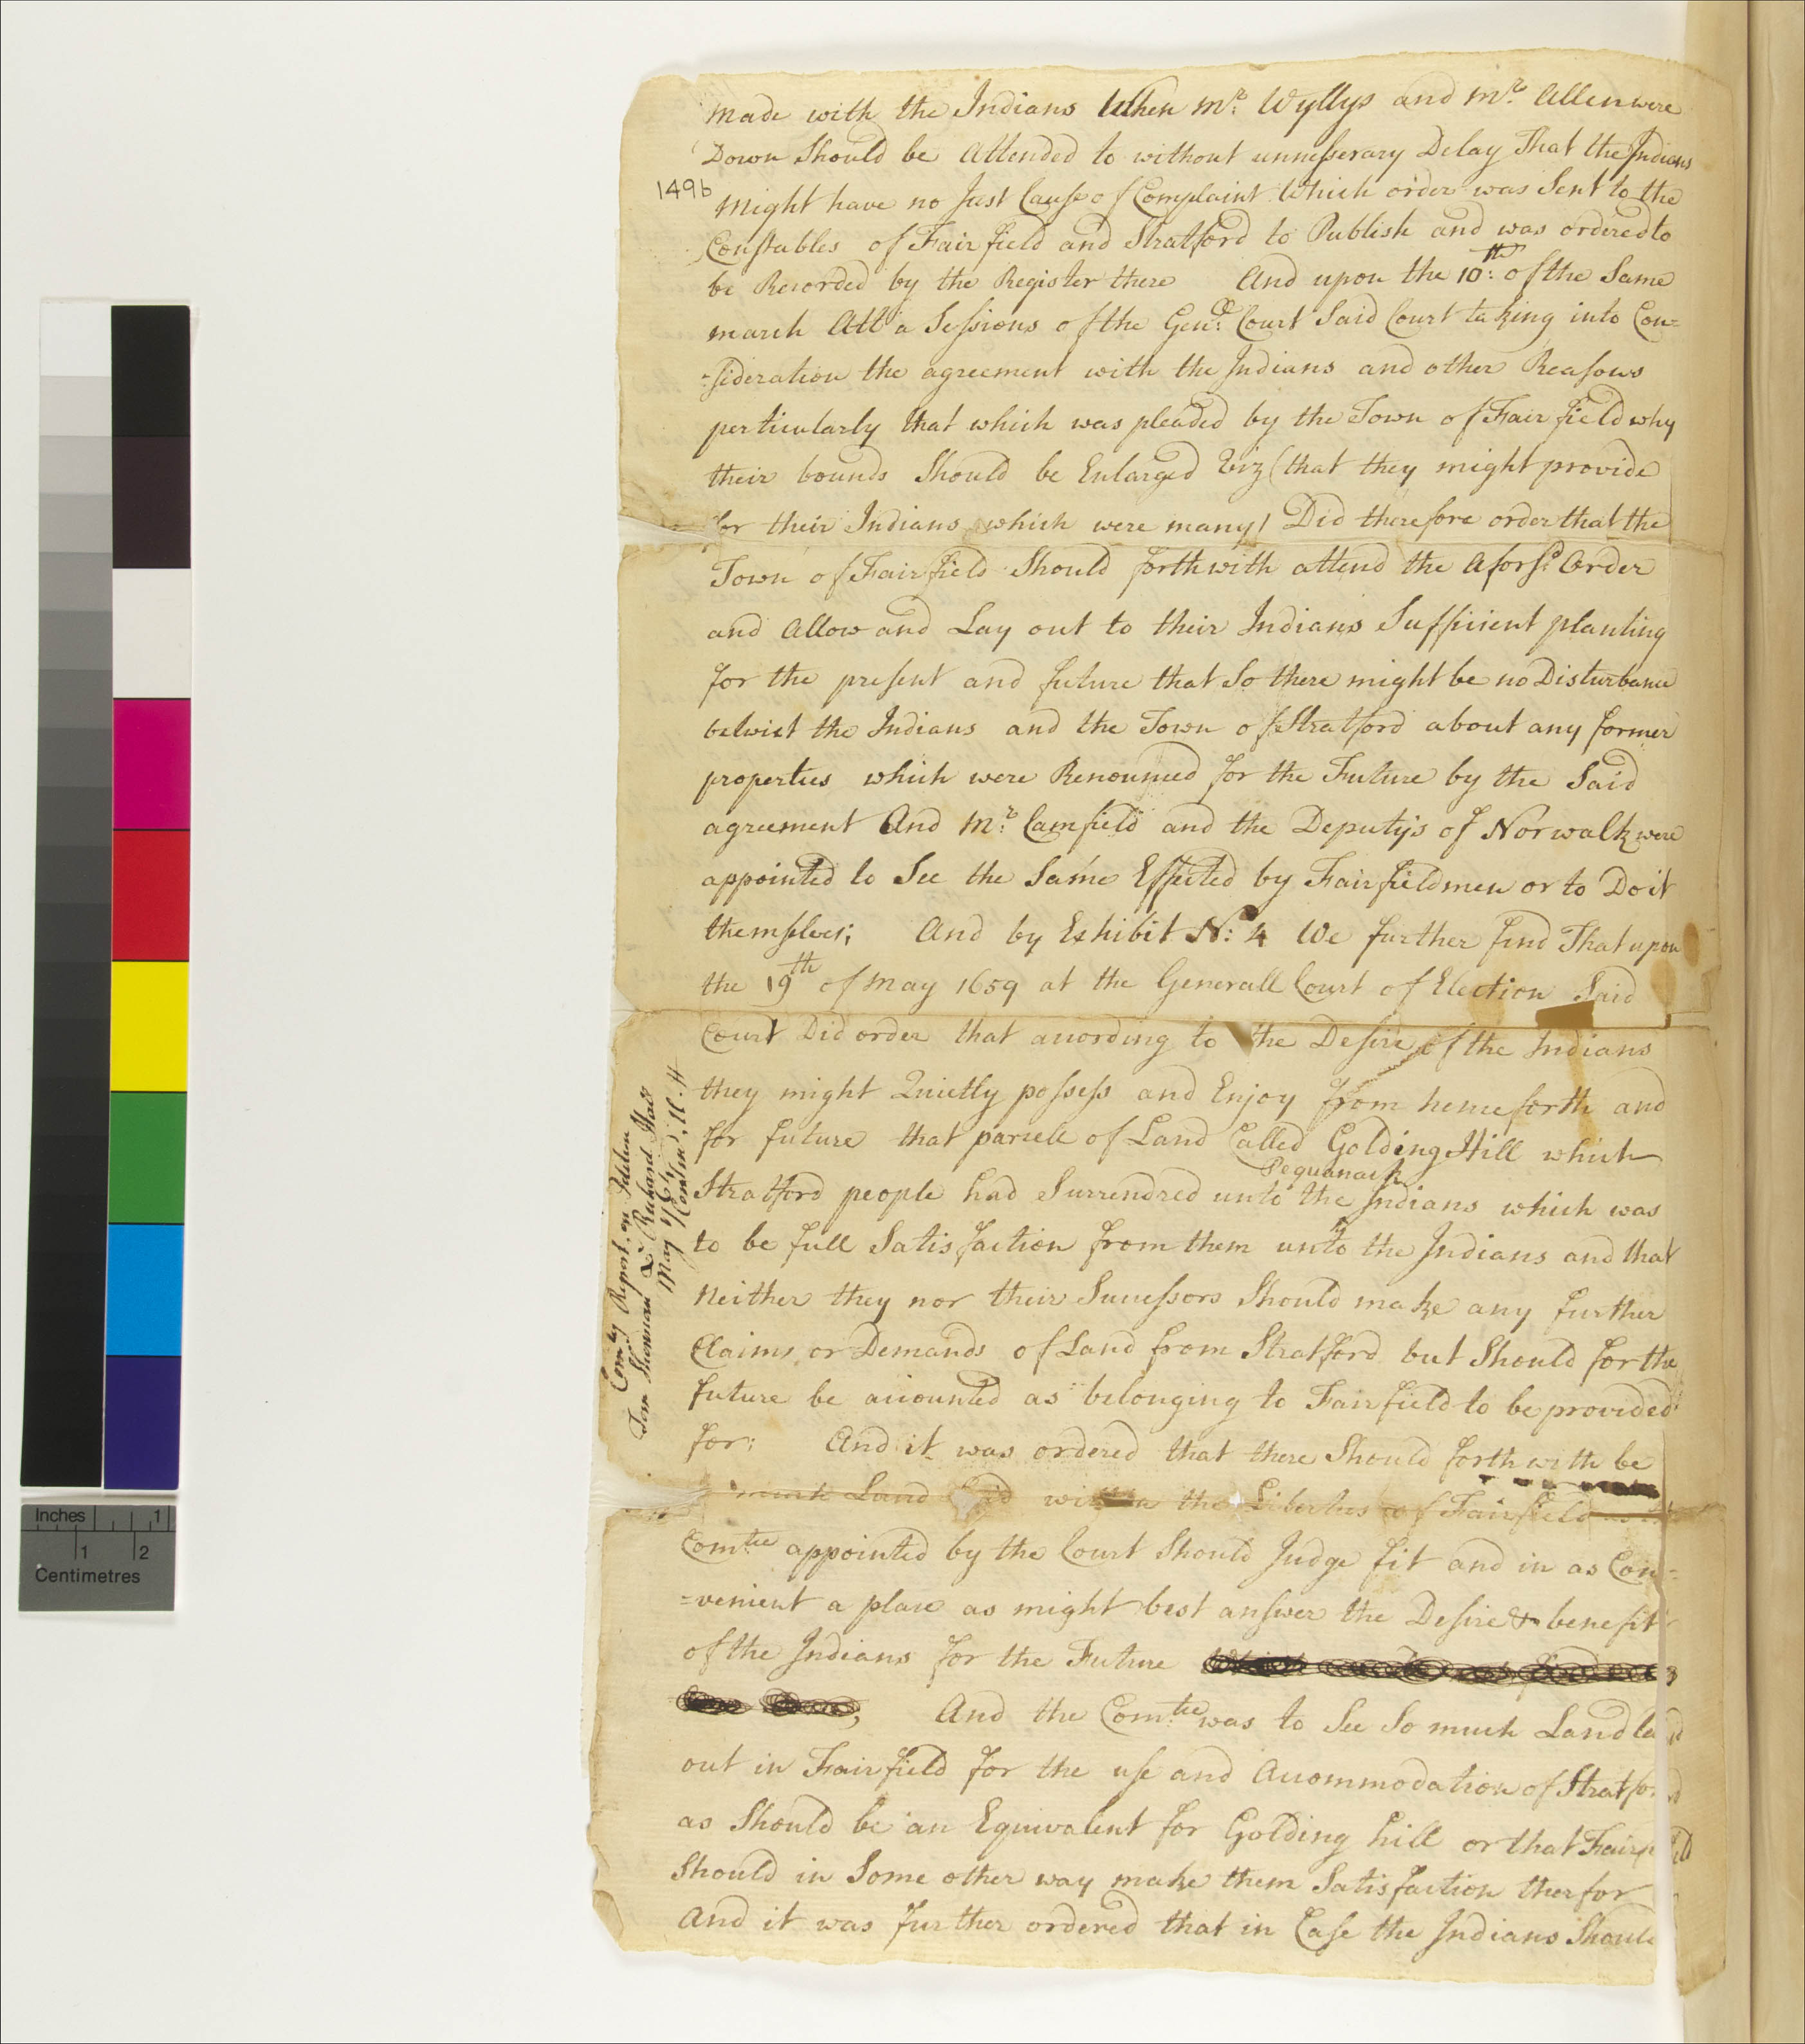 made with the Indians When Mr. Wyllys and Mr. Allen were
Down Should be Attended to without unnesserary Delay That the Indians
149b
might have no Just Cause of Complaint Which order was Sent to the
Constables of Fairfield and Stratford to Publish and was ordered to
be Recorded by the Register there And upon the 10th: of the Same
march Att a Sessions of the Genll: Court Said Court taking into Con=
=sideration the agreement with the Indians and other Reasons
perticularly that which was pleaded by the Town of Fairfield why
their bounds Should be Enlarged Viz (that they might provide
for their Indians which were many) Did therefore order that the
Town of Fairfield Should forthwith attend the Aforsd: Order
and Allow and Lay out to their Indians Sufficient planting
for the present and future that So there might be no Disturbance
betwixt the Indians and the Town of Stratford about any former
properties which were Renounced for the Future by the Said
agreement And Mr: Camfield and the Deputys of Norwalk were
appointed to See the Same Effected by Fairfieldmen or to Do it
themselves; And by Exhibit No: 4 We further find That upon
the 19th of May 1659 at the Generall Court of Election Said
Court Did order that according to the Desire of the Indians
they might Quietly possess and Enjoy from henceforth and
for future that parcell of Land Called Golding Hill which
Pequanack
Stratford people had Surrendred unto the Indians which was
to be full Satisfaction from them unto the Indians and that
Neither they nor their Successors Should make any further
Claims or Demands of Land from Stratford but Should for the
future be accounted as belonging to Fairfield to be provided
for: And it was ordered that there Should forthwith be
Land within the Liberties of Fairfield
Comtee appointed by the Court Should Judge fit and in as Con=
=venient a place as might best answer the Desire & benefit
of the Indians for the Future
And the Comtee was to See So much Land laid
out in Fairfield for the use and Accommodation of Stratford
as Should be an Equivalent for Golding hill or that Fairfield
Should in Some other way make them Satisfaction therfor
And it was further ordered that in Case the Indians Should
Comtey Report on Petition
Tom Sherman & Richard Hall
May 1765